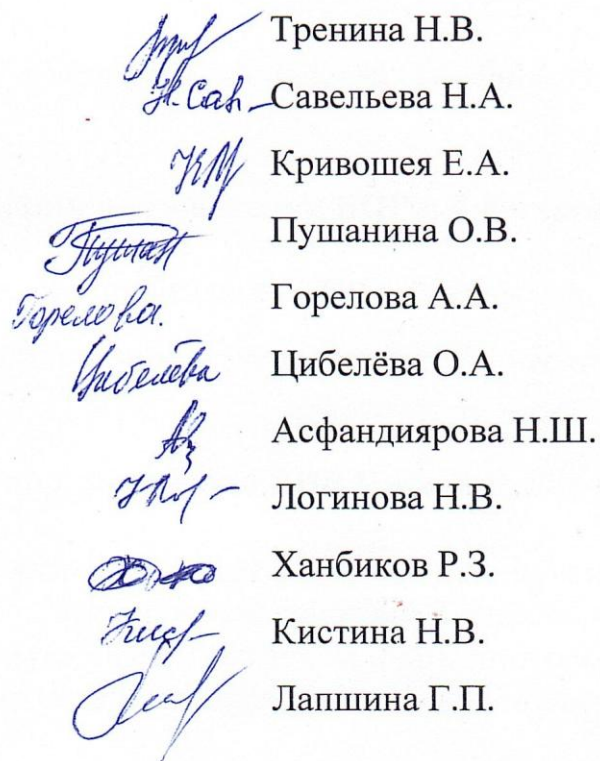 Тренина Н.В.
Н.Сав Савельева Н.А.
Кривошея Е.А.
Пушан Пушанина О.В.
Горелова. Горелова А.А.
Цибелёва Цибелёва О.А.
Асфандиярова Н.Ш.
Логинова Н.В.
Ханбиков Р.З.
Кистина Н.В.
Лапшина Г.П.